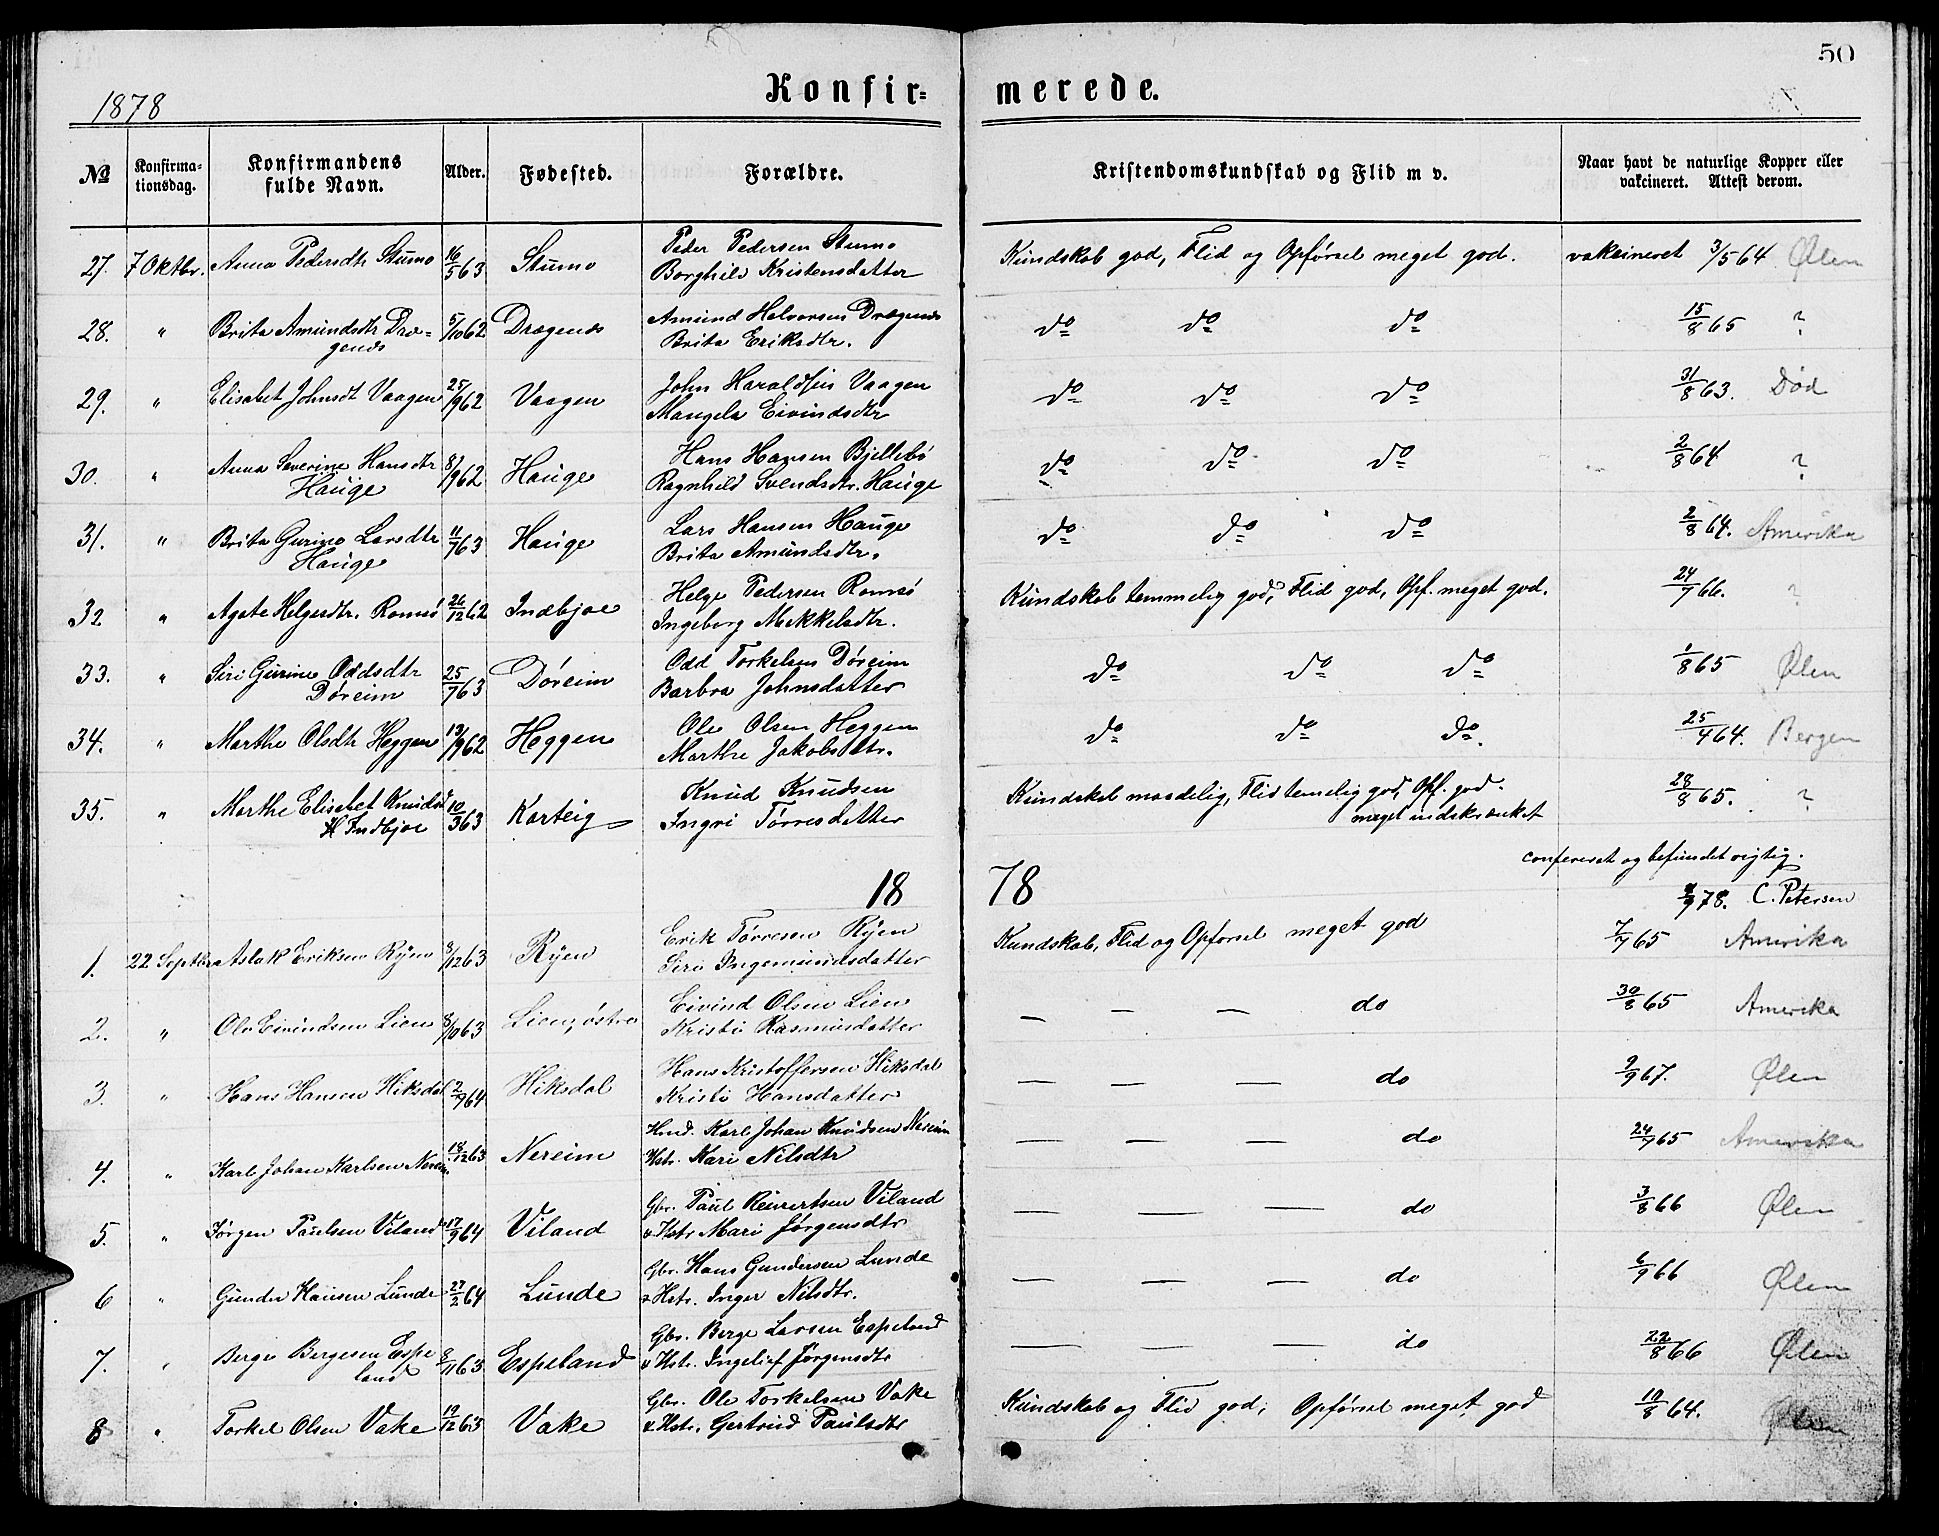 50
1878
Konfir=
merede.
№ Konfirma- tionsdag. Konfirmandens fulde Navn. Alder. Fødested. Forældre. Kristendomskundskab og Flid m v. Naar havt de naturlige Kopper eller vakcineret. Attest derom.
27. 7 Oktbr. Anna Pedersdtr Stumo 16/5 63 Stumo Peder Pedersen Stumo Kundskab god, Flid og Opførsel meget god. vakcineret 3/5 64 Ølen
Borghild Kristensdatter
28. " Brita Amundsdtr Dræ- 5/10 62 Drægends Amund Halvorsen Drægends do do do 15/8 65 ?
gends Brita Eriksdtr.
29. " Elisabet Johnsdt Vaagen 25/9 62 Vaagen John Haraldsen Vaagen do do do 31/8 63. Død
Mangela Eivindsdtr
30. " Anna Severine Hansdtr 8/9 62 Hauge Hans Hansen Bjellebø do do do 2/8 64 ?
Hauge Ragnhild Svendsdtr. Hauge
31. " Brita Gurine Larsdtr 11/7 63 Hauge Lars Hansen Hauge do do do 2/8 64. Amerika
Hauge Brita Amundsdtr.
32 " Agate Helgesdtr. Romsø 26/12 62 Indbjoe Helge Pedersen Romsø Kundskab temmelig god, Flid god, Opf. meget god. 24/7 66. ?
Ingeborg Mekkelsdtr.
33. " Siri Gurine Oddsdtr 25/7 63 Døreim Odd Torkelsen Døreim do do do 1/8 65 Ølen
Døreim Barbra Johnsdatter
34. " Marthe Olsdtr Heggen 13/9 62 Heggen Ole Olsen Heggen do do do. 25/4 64. Bergen
Marthe Jakobsdtr.
35. " Marthe Elisabet Knudsd 10/3 63 Karteig Knud Knudsen Kundskab maadelig, Flid temelig god, Opf. god. 28/8 65. ?
Indbjoe Ingri Tørresdatter meget indskrænket
confereret og befundet rigtig.
18 78
/9 78. C. Petersen
1. 22 Septbr Aslak Eriksen Ryen 8/12 63 Ryen Erik Tørresen Ryen Kundskab, Flid og Opførsel meget god 7/7 65 Amerika
Siri Ingemundsdatter
2. " Ole Eivindsen Lien 8/10 63 Lien, østre Eivind Olsen Lien — — — do 30/8 65 Amerika
Kristi Rasmusdatter
3. " Hans Hansen Hiksdal 2/9 64 Hiksdal Hans Kristoffersen Hiksdal — — — do 9/9 67. Ølen
Kristi Hansdatter
4. " Karl Johan Karlsen Nereim 18/12 63 Nereim Hmd. Karl Johan Knudsen Nereim — — — do 24/7 65 Amerika
Hstr. Kari Nilsdtr
5. " Jørgen Paulsen Viland 17/9 64 Viland Gbr. Paul Reinertsen Viland — — — do 3/8 66 Ølen
& Hstr Mari Jørgensdtr
6 " Gunder Hansen Lunde 27/2 64 Lunde Gbr. Hans Gundersen Lunde — — — do 6/9 66 Ølen
& Hstr. Inger Nilsdtr.
7. " Berge Bergesen Espe 8/11 63 Espeland Gbr. Berge Larsen Espeland — — — do 22/8 66 Ølen
land & Hstr. Ingelif Jørgensdtr
8 " Torkel Olsen Vake 19/12 63 Vake Gbr. Ole Torkelsen Vake Kundskab og Flid god, Opførsel meget god 10/8 64. Ølen
& Hstr. Gertrud Paulsdtr